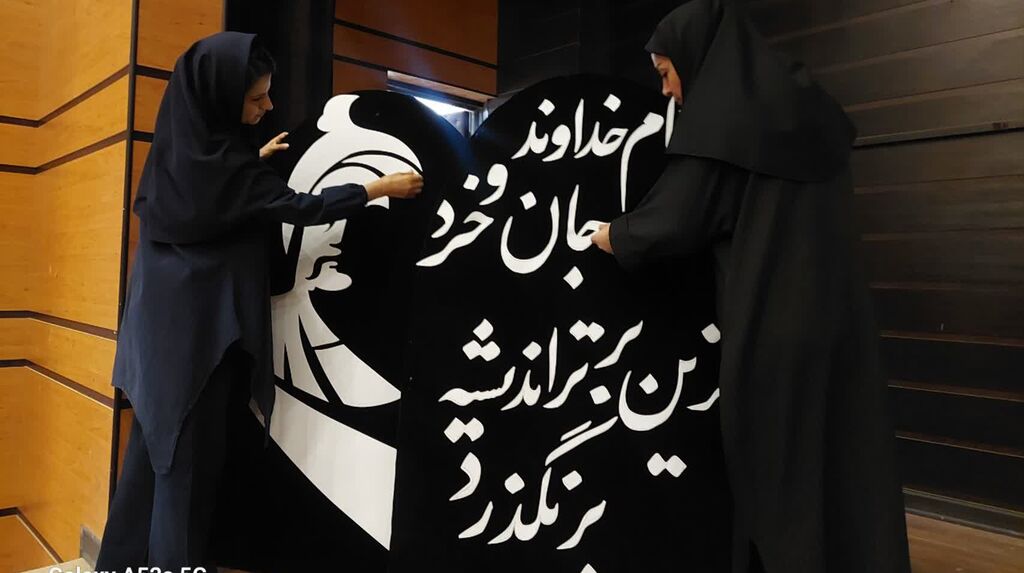 ام خداوند
جان و خرد
زین برتر اندیشه
بر نگذرد
Galaxy A52s 5G